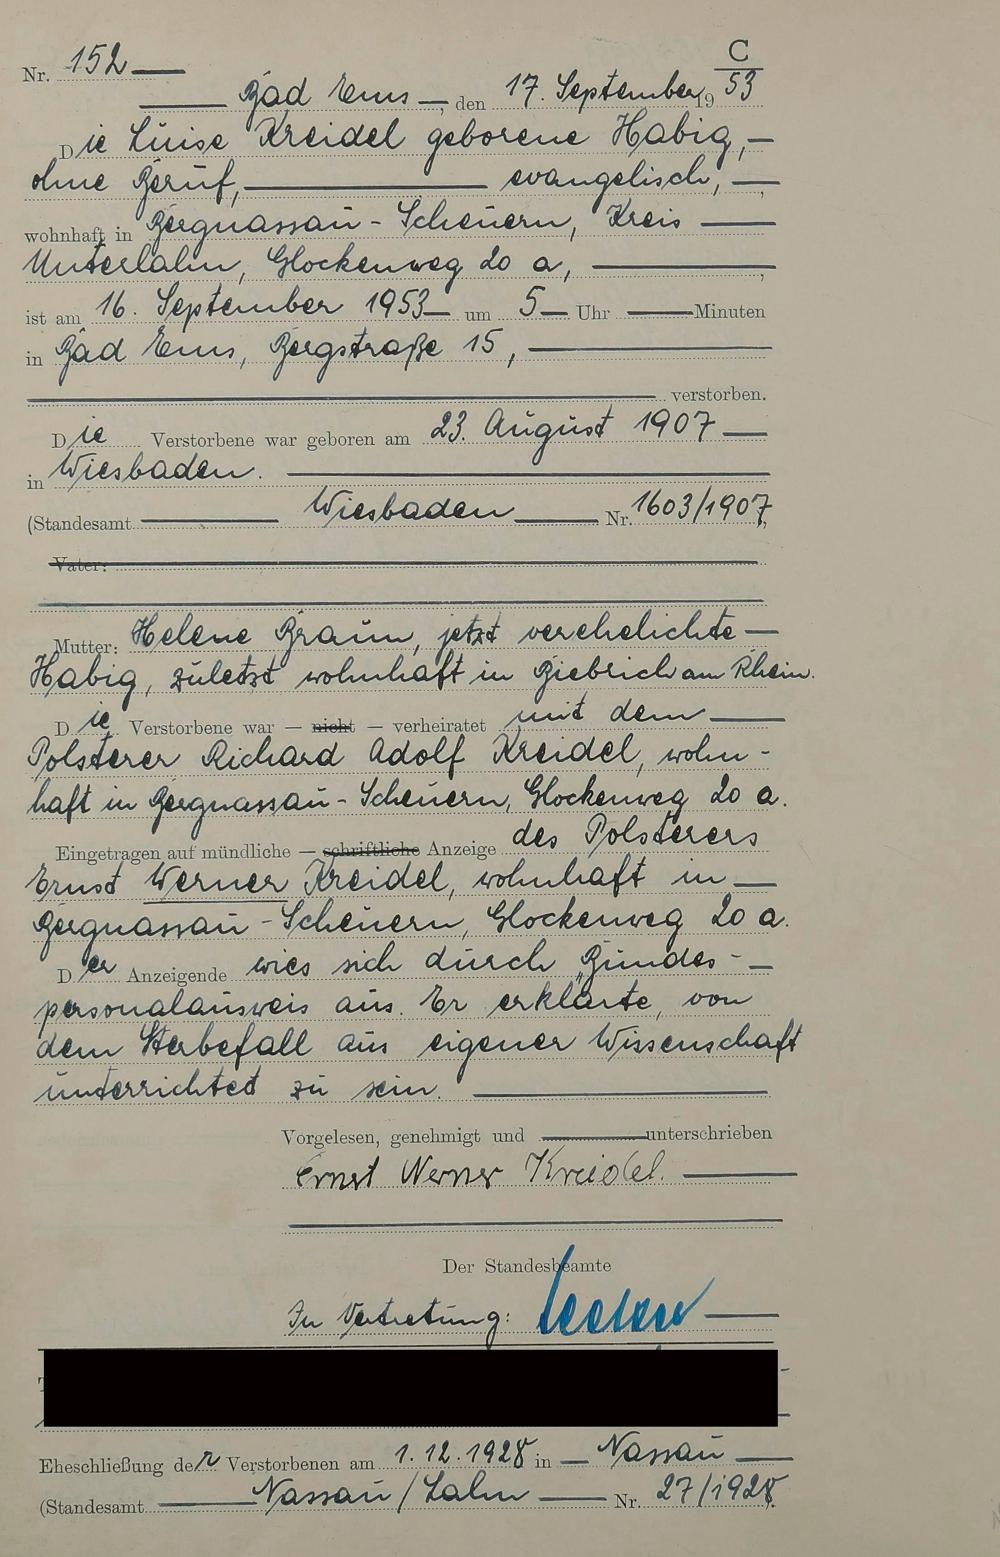 C
Nr. 152
Bad Ems, den 17. September 1953
Die Luise Kreidel geborene Habig,
ohne Beruf, evangelisch,
wohnhaft in Bergnassau-Scheuern, Kreis
Unterlahn, Glockenweg 20 a,
ist am 16. September 1953 um 5 Uhr Minuten
in Bad Ems, Bergstraße 15,
verstorben.
Die Verstorbene war geboren am 23. August 1907
in Wiesbaden.
(Standesamt Wiesbaden Nr. 1603/1907
Vater:
Mutter: Helene Braun, jetzt verehelichte
Habig, zuletzt wohnhaft in Biebrich am Rhein.
Die Verstorbene war — nicht — verheiratet mit dem
Polsterer Richard Adolf Kreidel, wohn-
haft in Bergnassau-Scheuern, Glockenweg 20 a.
Eingetragen auf mündliche — schriftliche Anzeige des Polsterers
Ernst Werner Kreidel, wohnhaft in
Bergnassau-Scheuern, Glockenweg 20 a.
Der Anzeigende wies sich durch Bundes-
personalausweis aus. Er erklärte, von
dem Sterbefall aus eigener Wissenschaft
unterrichtet zu sein.
Vorgelesen, genehmigt und unterschrieben
Ernst Werner Kreidel.
Der Standesbeamte
In Vertretung:
Eheschließung der Verstorbenen am 1.12.1928 in Nassau
(Standesamt Nassau/Lahn Nr. 27/1928